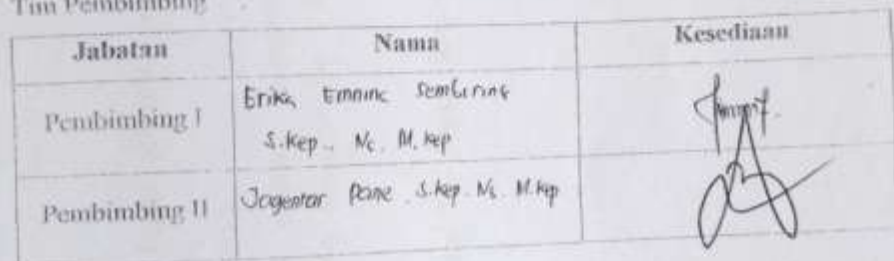 Tim Pembimbing
Jabatan Nama Kesediaan
Pembimbing I Erika Emnina Sembiring
S.Kep., Ns. M.Kep
Pembimbing II Jagentar Pane S.Kep. Ns. M.Kep